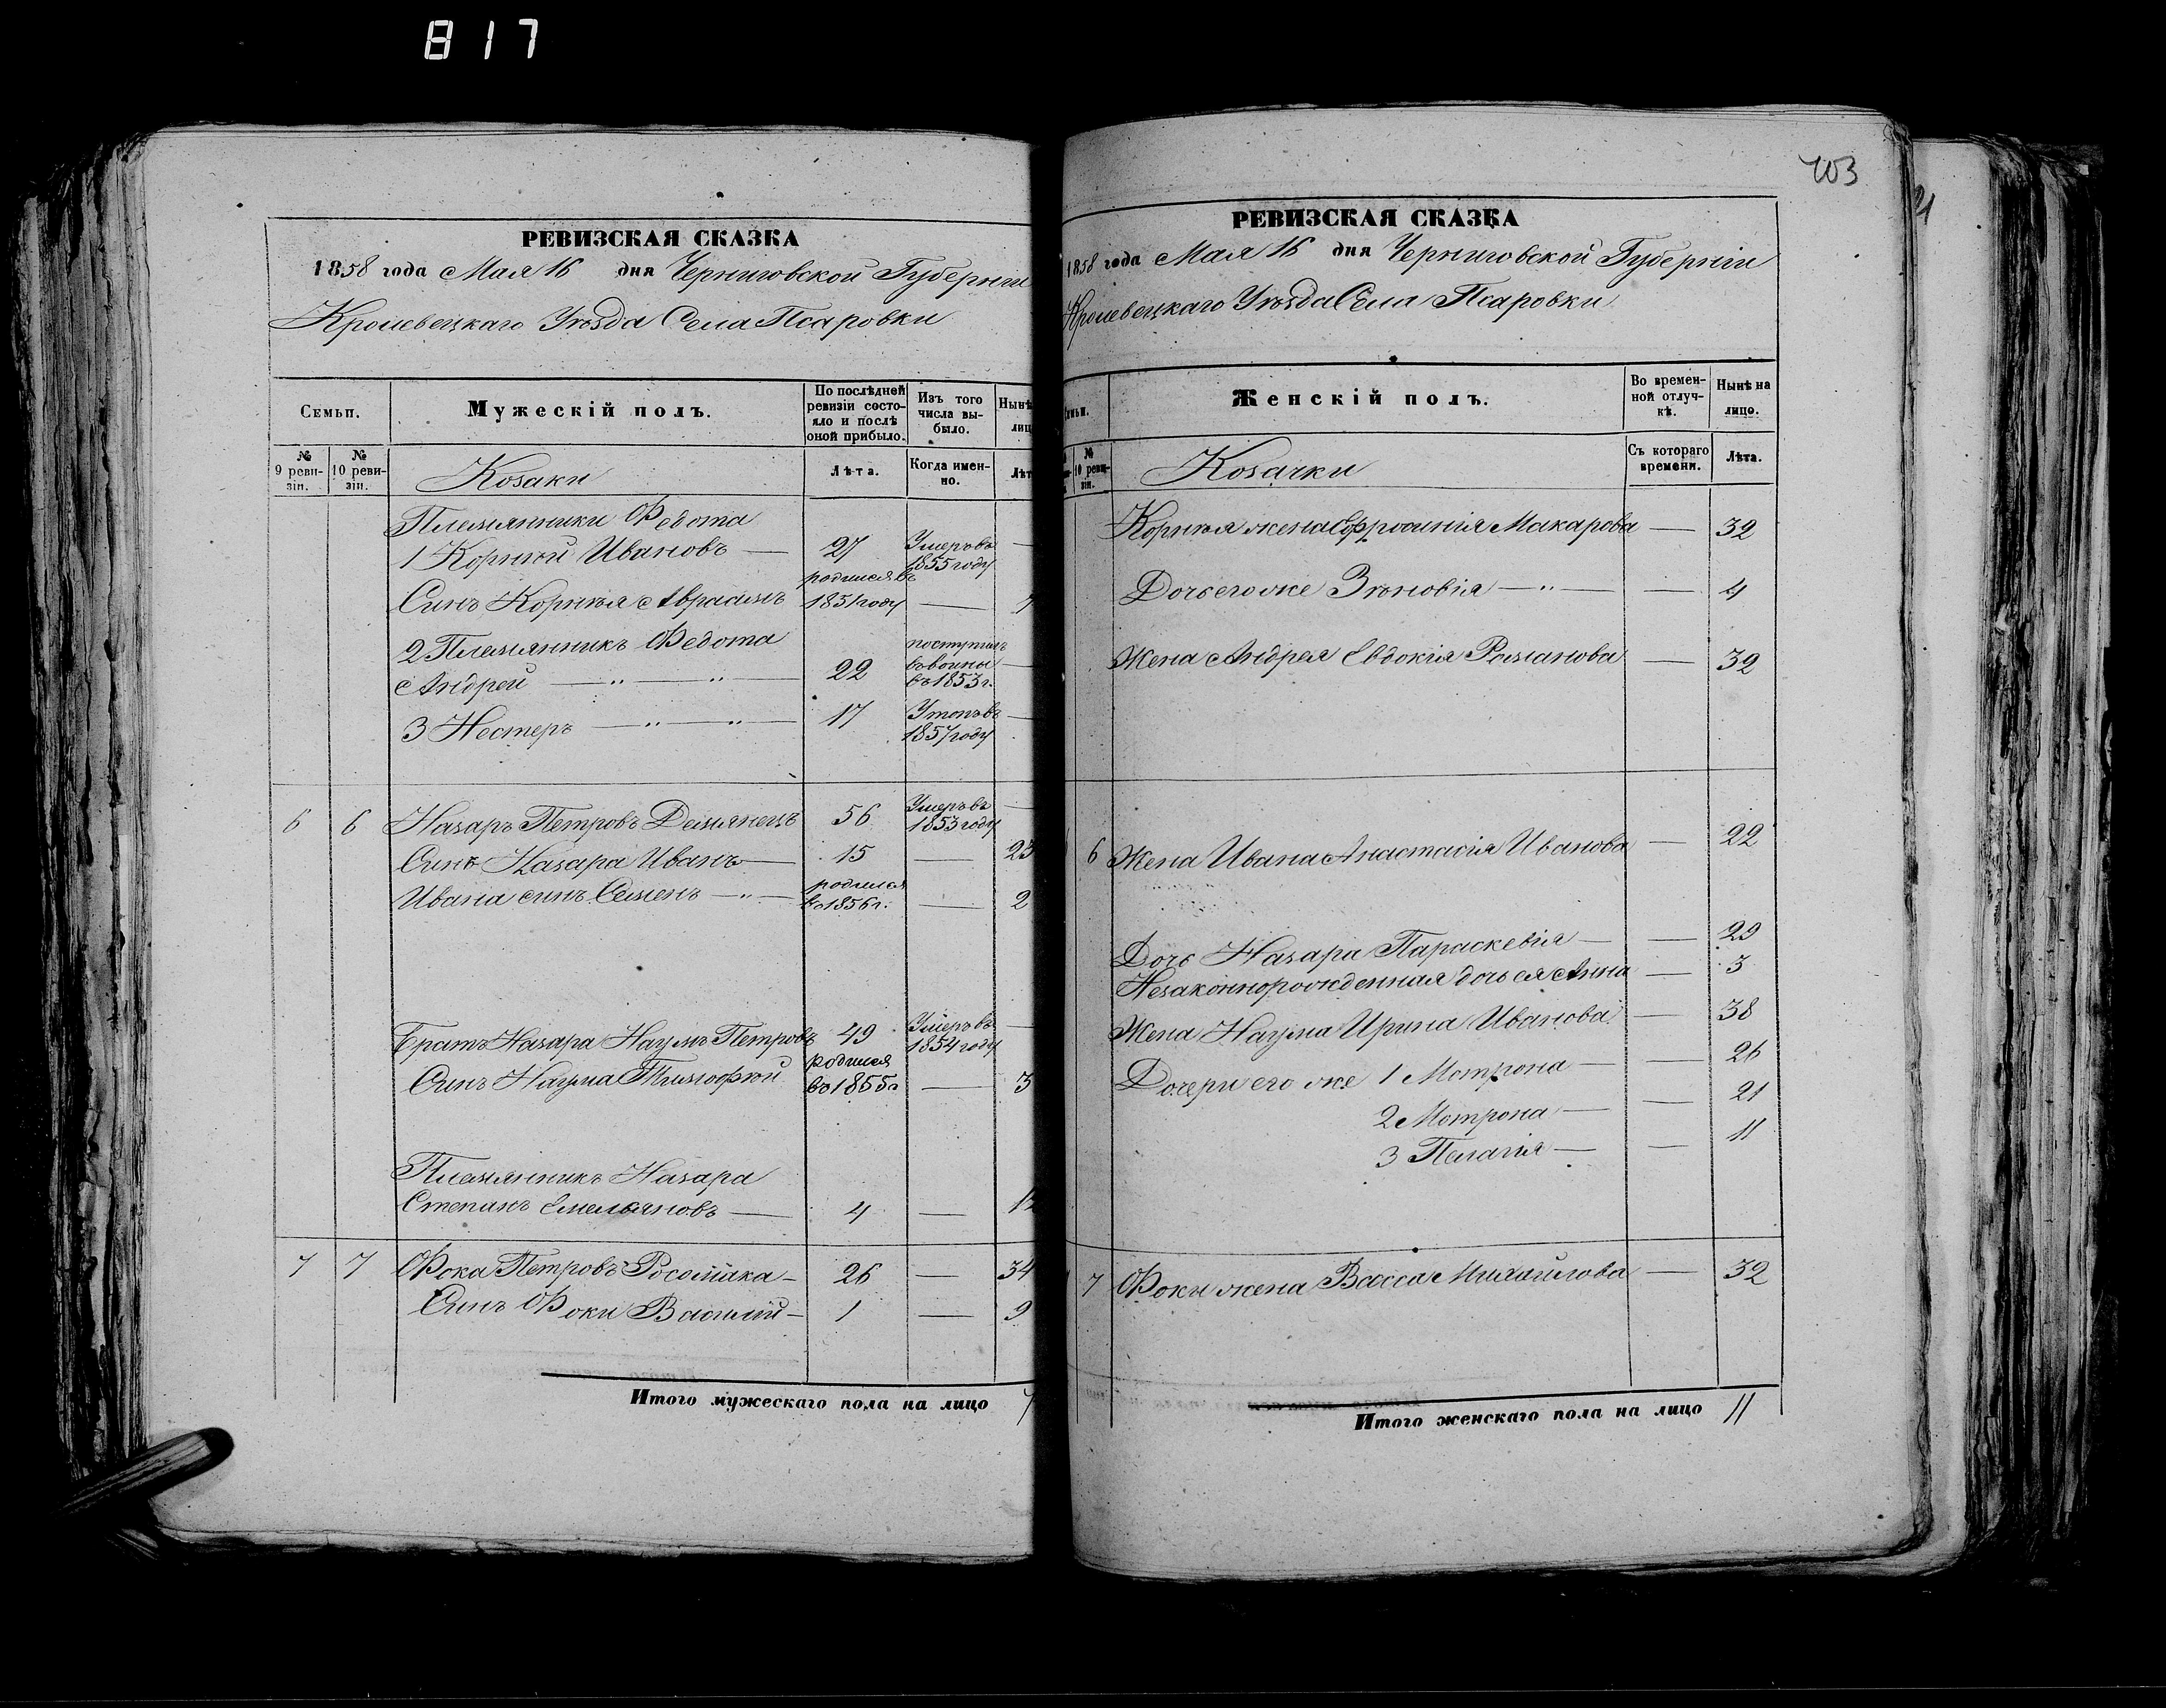 817
РЕВИЗСКАЯ СКАЗКА
1858 года Мая 16 дня Черниговской Губерніи
Кролевецкаго Уѣзда Села Псаровки
Семьи.
Мужескій полъ.
По послѣдней ревизіи состояло и послѣ оной прибыло.
Изъ того числа выбыло.
Нынѣ лиц
№ 9 ревизіи.
№ 10 ревизіи.
Козаки
Лѣта.
Когда именно.
Лѣт
Племянники Федота
1 Корнѣй Ивановъ — 27 Умеръ въ 1855 году —
Синъ Корнѣя Авраамъ родился въ 1851 году — 7
2 Племянникъ Федота
Андрей — " — " — 22 поступилъ въ воины въ 1853 г. —
3 Нестеръ — " — " — 17 Утопъ въ 1857 году —
6 6 Назаръ Петровъ Демянецъ 56 Умеръ въ 1853 году —
Синъ Назара Иванъ — 15 — 23
Ивана синъ Семенъ — " — родился въ 1856 г. — 2
Братъ Назара Наумъ Петровъ 49 Умеръ въ 1854 году —
Синъ Наума Тимофѣй родился въ 1855 г — 3
Племянникъ Назара
Степанъ Емельяновъ — 4 — 12
7 7 Фока Петровъ Росомака — 26 — 34
Синъ Фоки Василій — 1 — 9
Итого мужескаго пола на лицо 7
703
РЕВИЗСКАЯ СКАЗКА
1858 года Мая 16 дня Черниговской Губерніи
Кролевецкаго Уѣзда Села Псаровки
Женскій полъ.
Во временной отлучкѣ.
Нынѣ на лицо.
№ 10 ревизіи.
Козачки
Съ котораго времени.
Лѣта.
Корнѣя жена Ефросинія Макарова — 32
Дочь его же Зѣновія — " — — 4
Жена Андрея Евдокія Романова — 32
6 Жена Ивана Анастасія Иванова — 22
Дочь Назара Параскевія — — 29
Незаконнорожденная дочь ея Анна — 3
Жена Наума Ирина Иванова — 38
Дочери его же 1 Мотрона — — 26
2 Мотрона — — 21
3 Пелагія — — 11
7 Фоки жена Васса Михайлова — 32
Итого женскаго пола на лицо 11